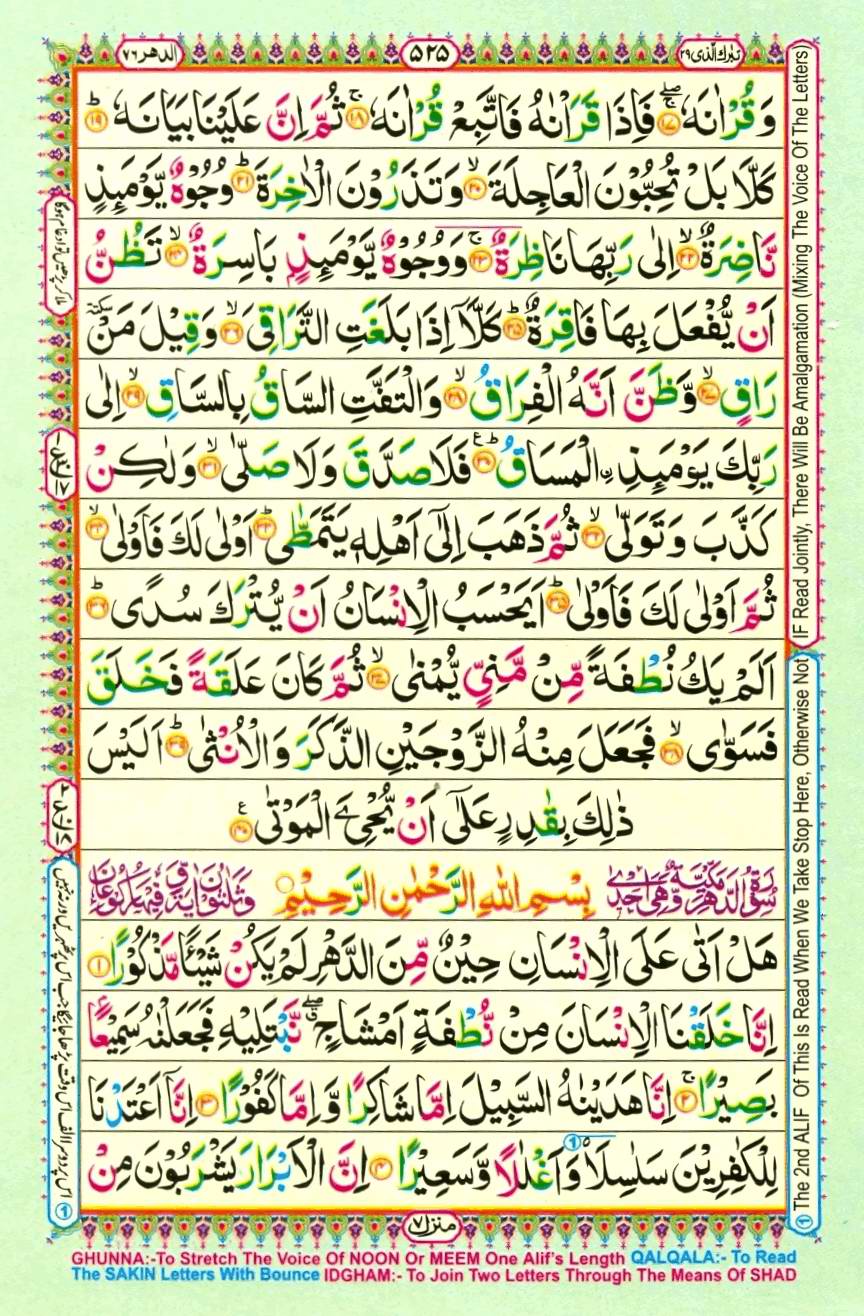 تبٰرك الّذی ٢٩
٥٢٥
الدهر ٧٦
وَقُرْاٰنَهٗ ۚۖ ﴿١٧﴾ فَاِذَا قَرَاْنٰهُ فَاتَّبِعْ قُرْاٰنَهٗ ۚ ﴿١٨﴾ ثُمَّ اِنَّ عَلَيْنَا بَيَانَهٗ ؕ ﴿١٩﴾
كَلَّا بَلْ تُحِبُّوْنَ الْعَاجِلَةَ ۙ ﴿٢٠﴾ وَتَذَرُوْنَ الْاٰخِرَةَ ؕ ﴿٢١﴾ وُجُوْهٌ يَّوْمَئِذٍ
نَّاضِرَةٌ ۙ ﴿٢٢﴾ اِلٰى رَبِّهَا نَاظِرَةٌ ۚ ﴿٢٣﴾ وَوُجُوْهٌ يَّوْمَئِذٍۭ بَاسِرَةٌ ۙ ﴿٢٤﴾ تَظُنُّ
اَنْ يُّفْعَلَ بِهَا فَاقِرَةٌ ؕ ﴿٢٥﴾ كَلَّاۤ اِذَا بَلَغَتِ التَّرَاقِىَ ۙ ﴿٢٦﴾ وَقِيْلَ مَنْ ٚسكتة
رَاقٍ ۙ ﴿٢٧﴾ وَّظَنَّ اَنَّهُ الْفِرَاقُ ۙ ﴿٢٨﴾ وَالْتَفَّتِ السَّاقُ بِالسَّاقِ ۙ ﴿٢٩﴾ اِلٰى
رَبِّكَ يَوْمَئِذِ ۨالْمَسَاقُ ؕ ع ﴿٣٠﴾ فَلَا صَدَّقَ وَلَا صَلّٰى ۙ ﴿٣١﴾ وَلٰكِنْ
كَذَّبَ وَتَوَلّٰى ۙ ﴿٣٢﴾ ثُمَّ ذَهَبَ اِلٰٓى اَهْلِهٖ يَتَمَطّٰى ؕ ﴿٣٣﴾ اَوْلٰى لَكَ فَاَوْلٰى ۙ ﴿٣٤﴾
ثُمَّ اَوْلٰى لَكَ فَاَوْلٰى ؕ ﴿٣٥﴾ اَيَحْسَبُ الْاِنْسَانُ اَنْ يُّتْرَكَ سُدًى ؕ ﴿٣٦﴾
اَلَمْ يَكُ نُطْفَةً مِّنْ مَّنِىٍّ يُّمْنٰى ۙ ﴿٣٧﴾ ثُمَّ كَانَ عَلَقَةً فَخَلَقَ
فَسَوّٰى ۙ ﴿٣٨﴾ فَجَعَلَ مِنْهُ الزَّوْجَيْنِ الذَّكَرَ وَالْاُنْثٰى ؕ ﴿٣٩﴾ اَلَيْسَ
ذٰلِكَ بِقٰدِرٍ عَلٰٓى اَنْ يُّحْیِۦَ الْمَوْتٰى ع ﴿٤٠﴾
سُوْرَةُ الدَّهْرِ مَكِّيَّةٌ وَّهِىَ اِحْدٰى بِسْمِ اللّٰهِ الرَّحْمٰنِ الرَّحِيْمِ وَثَلٰثُوْنَ اٰيَةً وَّفِيْهَا رُكُوْعَانِ
هَلْ اَتٰى عَلَى الْاِنْسَانِ حِيْنٌ مِّنَ الدَّهْرِ لَمْ يَكُنْ شَيْـًٔا مَّذْكُوْرًا ﴿١﴾
اِنَّا خَلَقْنَا الْاِنْسَانَ مِنْ نُّطْفَةٍ اَمْشَاجٍ ۖۗ نَّبْتَلِيْهِ فَجَعَلْنٰهُ سَمِيْعًۢا
بَصِيْرًا ۚ ﴿٢﴾ اِنَّا هَدَيْنٰهُ السَّبِيْلَ اِمَّا شَاكِرًا وَّاِمَّا كَفُوْرًا ﴿٣﴾ اِنَّاۤ اَعْتَدْنَا
لِلْكٰفِرِيْنَ سَلٰسِلَا۟ ① وَاَغْلٰلًا وَّسَعِيْرًا ﴿٤﴾ اِنَّ الْاَبْرَارَ يَشْرَبُوْنَ مِنْ
منزل ٧
IF Read Jointly, There Will Be Amalgamation (Mixing The Voice Of The Letters)
① The 2nd ALIF Of This Is Read When We Take Stop Here, Otherwise Not
GHUNNA:-To Stretch The Voice Of NOON Or MEEM One Alif's Length QALQALA:- To Read
The SAKIN Letters With Bounce IDGHAM:- To Join Two Letters Through The Means Of SHAD